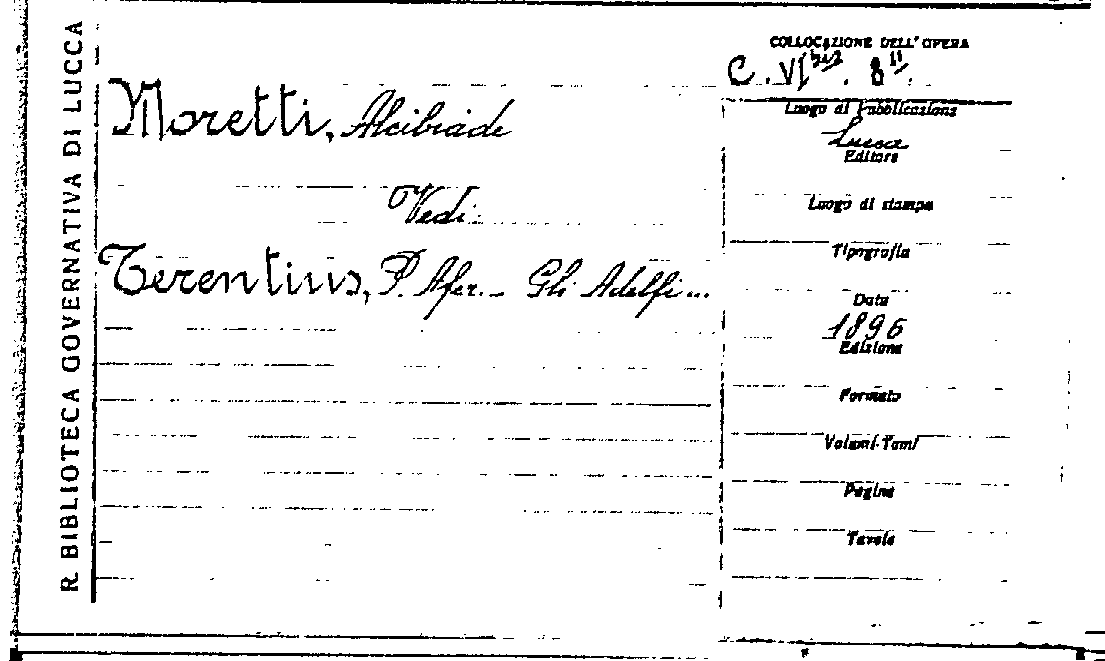 R. BIBLIOTECA GOVERNATIVA DI LUCCA
Moretti, Alcibiade
Vedi
Terentius, P. Afer. - Gli Adelfi...
COLLOCAZIONE DELL'OPERA
C. VI 8
Luogo di Pubblicazione
Lucca
Editore
Luogo di stampa
Tipografia
Data
1896
Edizione
Formato
Volumi-Tomi
Pagine
Tavole